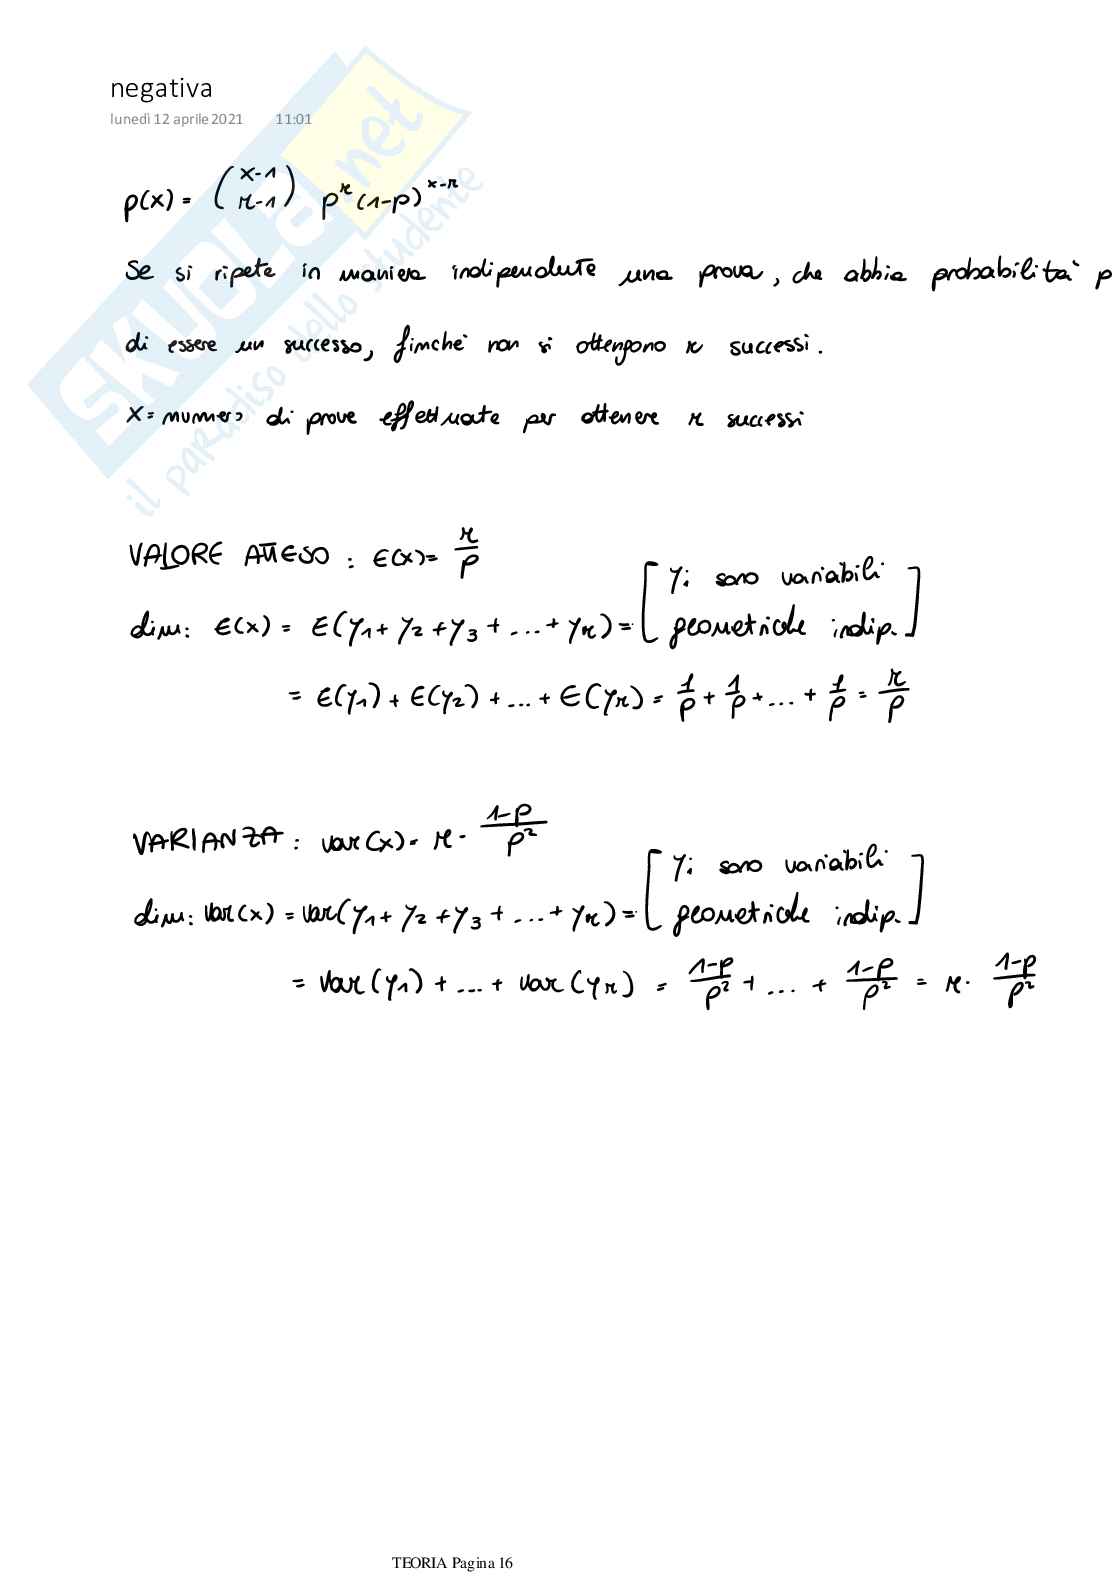 negativa
lunedì 12 aprile 2021 11:01
p(x) = (x-1 r-1) p^r (1-p)^x-r
Se si ripete in maniera indipendente una prova, che abbia probabilità p
di essere un successo, finché non si ottengono r successi.
X = numero di prove effettuate per ottenere r successi
VALORE ATTESO : E(x) = r/p
dim: E(x) = E(y1 + y2 + y3 + ... + yr) = [yi sono variabili geometriche indip.]
= E(y1) + E(y2) + ... + E(yr) = 1/p + 1/p + ... + 1/p = r/p
VARIANZA : var(x) = r · 1-p/p²
dim: Var(x) = Var(y1 + y2 + y3 + ... + yr) = [yi sono variabili geometriche indip.]
= Var(y1) + ... + Var(yr) = 1-p/p² + ... + 1-p/p² = r · 1-p/p²
SKUOLA.net
il paradiso dello studente
TEORIA Pagina 16